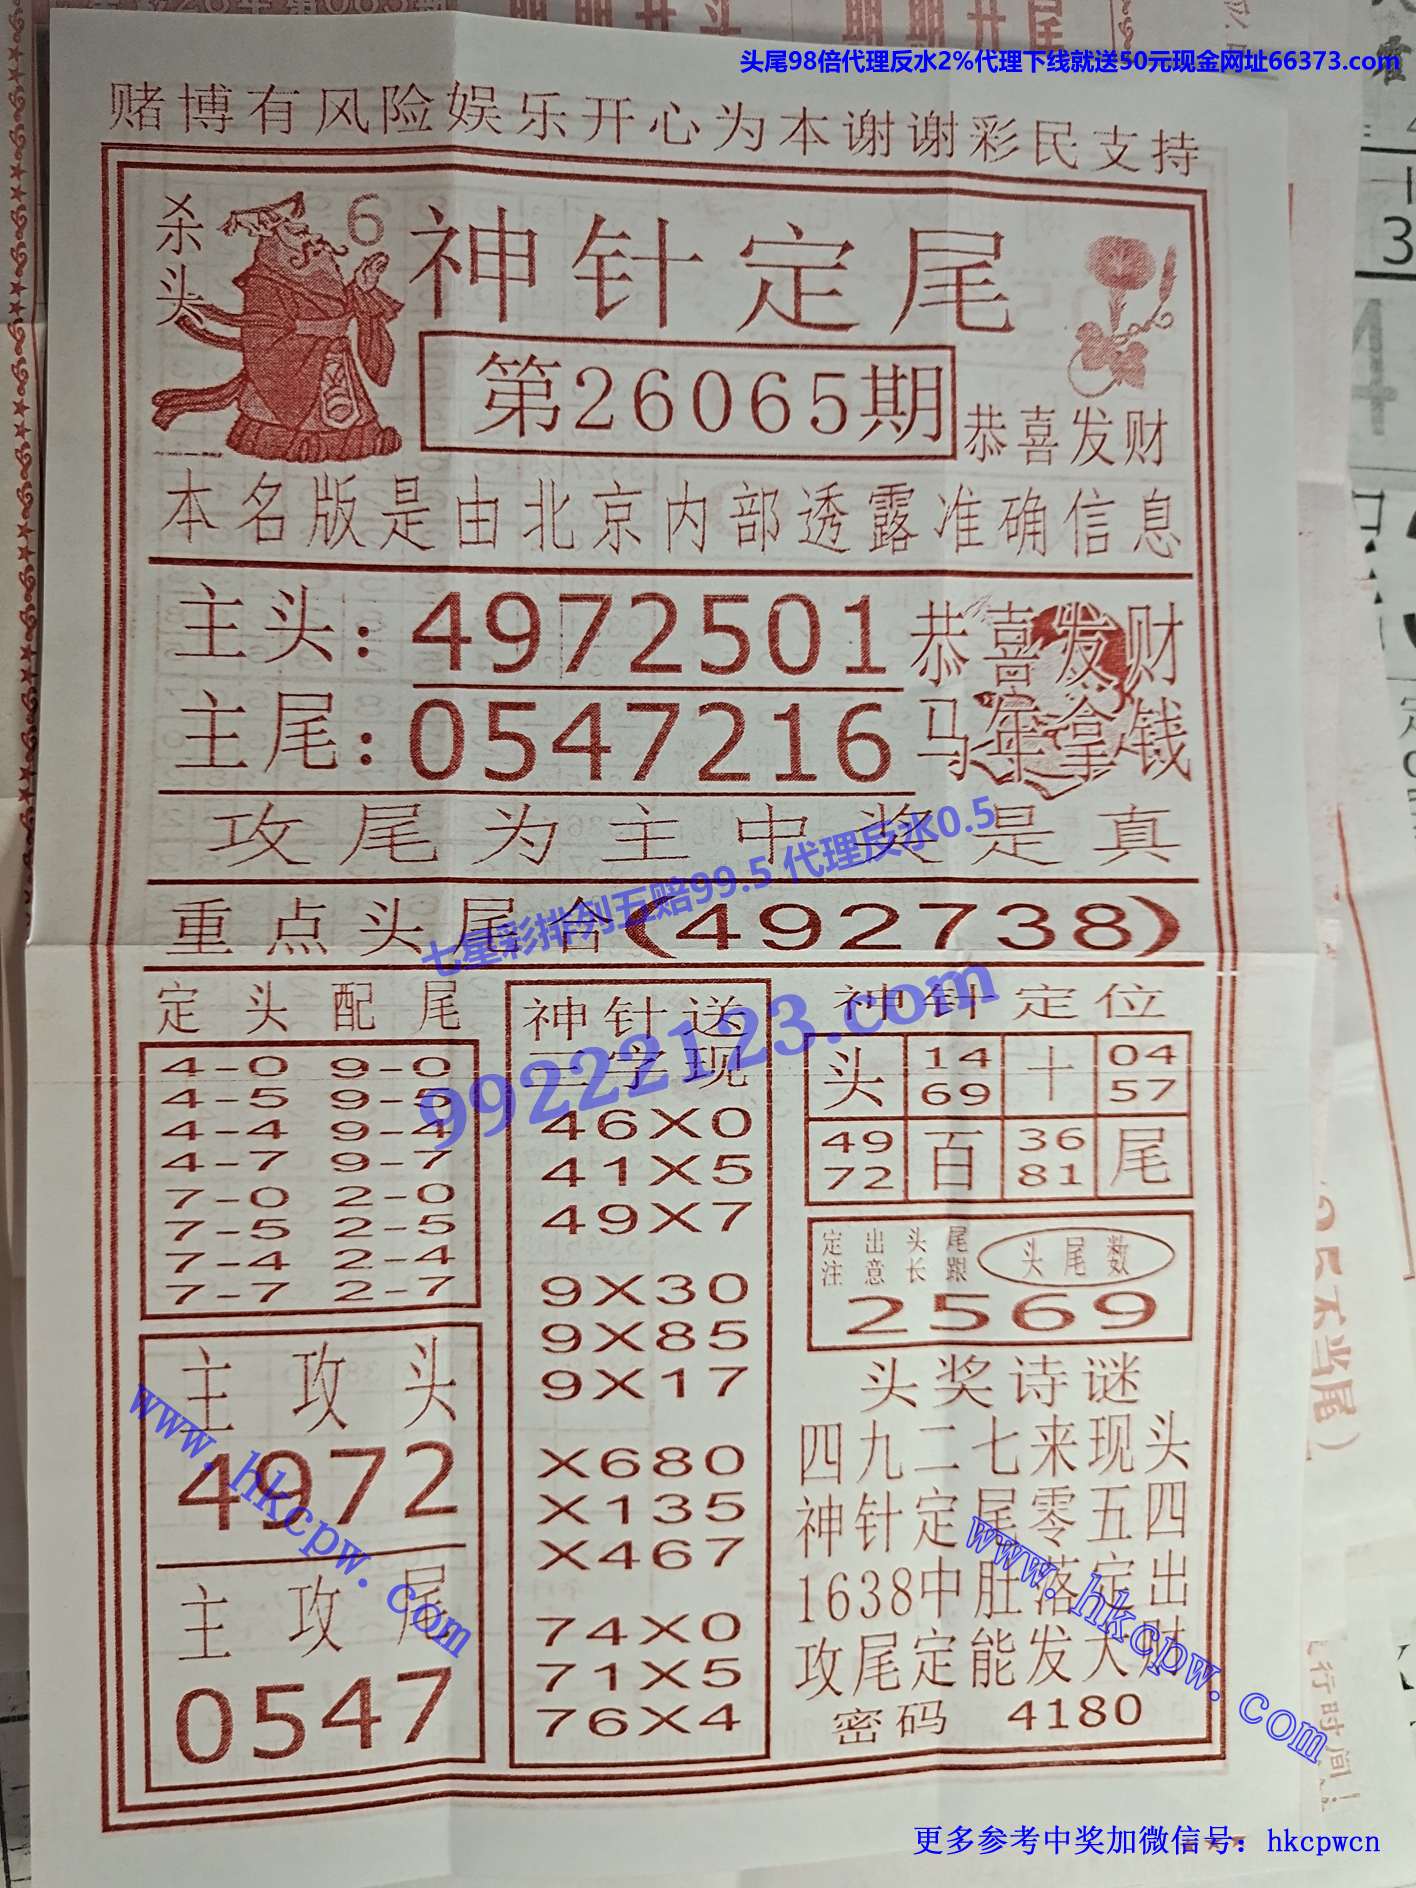 头尾98倍代理反水2%代理下线就送50元现金网址66373.com
赌博有风险娱乐开心为本谢谢彩民支持
杀头
6
神针定尾
第26065期
恭喜发财
本名版是由北京内部透露准确信息
主头：4972501
恭喜发财
主尾：0547216
马年拿钱
攻尾为主中奖是真
七星彩排列五赔99.5 代理反水0.5
重点头尾合(492738)
99222123.com
定头配尾
4-0 9-0
4-5 9-5
4-4 9-4
4-7 9-7
7-0 2-0
7-5 2-5
7-4 2-4
7-7 2-7
主攻头
4972
主攻尾
0547
www.hkcpw.com
神针送
三字现
46X0
41X5
49X7
9X30
9X85
9X17
X680
X135
X467
74X0
71X5
76X4
神针定位
头 14 十 04
69 57
49 百 36 尾
72 81
定出头尾
注意长跟
头尾数
2569
头奖诗谜
四九二七来现头
神针定尾零五四
1638中肚落定出
攻尾定能发大财
密码 4180
www.hkcpw.com
更多参考中奖加微信号：hkcpwcn
不当尾）
行时间